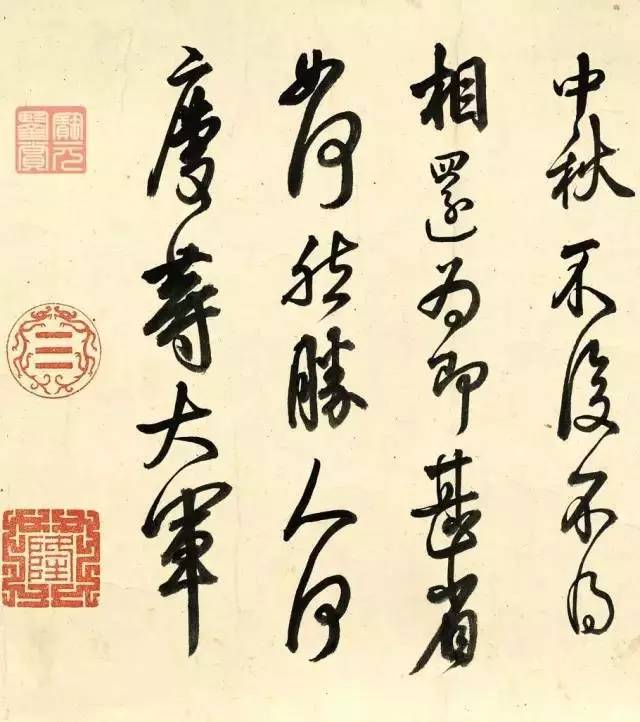 中秋不復不得
相還為即甚省
如何然勝人何
慶等大軍
隆